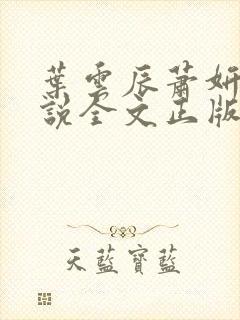 葉雲辰蕭妍
說全文正版
天藍寶藍